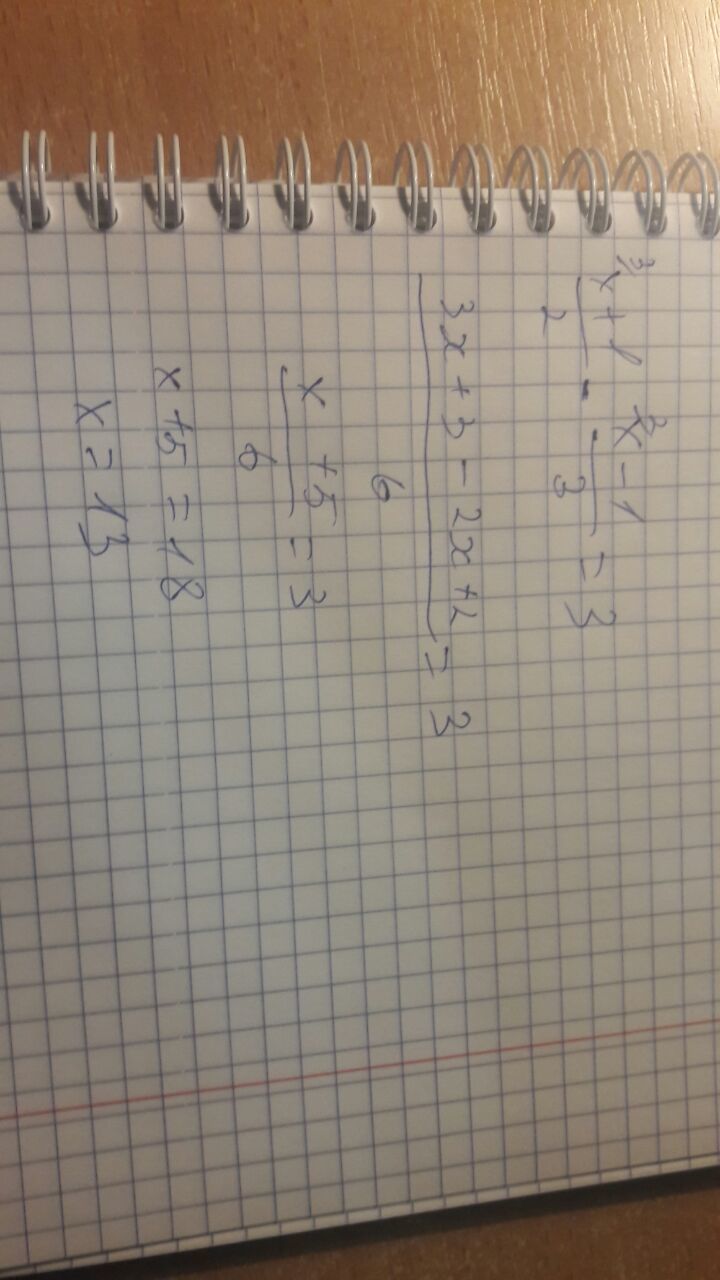 3/ x+1 / 2 - 2/ x-1 / 3 = 3
3x + 3 - 2x + 2 / 6 = 3
x + 5 / 6 = 3
x + 5 = 18
x = 13